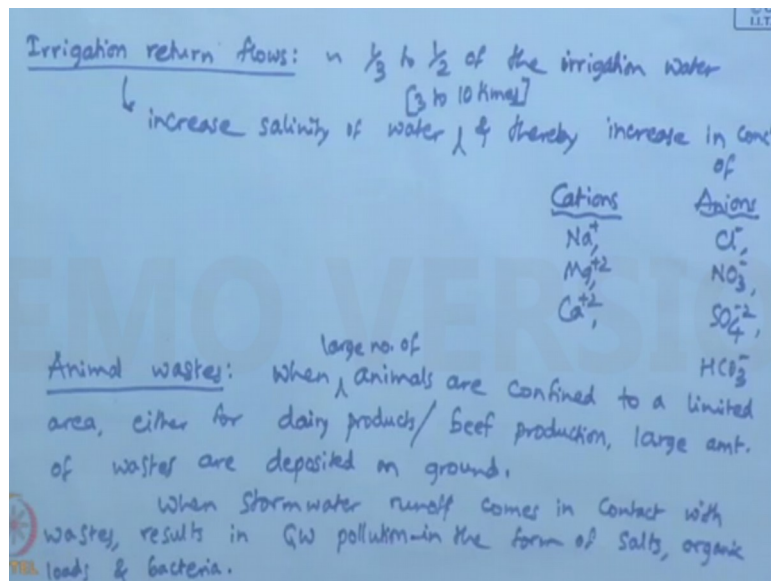 I.I.T.
Irrigation return flows: ~ 1/3 to 1/2 of the irrigation water
[3 to 10 times]
increase salinity of water & thereby increase in conc
of
Cations Anions
Na+, Cl-,
Mg+2, NO3-,
Ca+2, SO4-2,
HCO3-
large no. of
Animal wastes: When animals are confined to a limited
area, either for dairy products/ beef production, large amt.
of wastes are deposited on ground.
When stormwater runoff comes in contact with
wastes, results in GW pollution-in the form of salts, organic
loads & bacteria.
EMO VERSIO
TEL